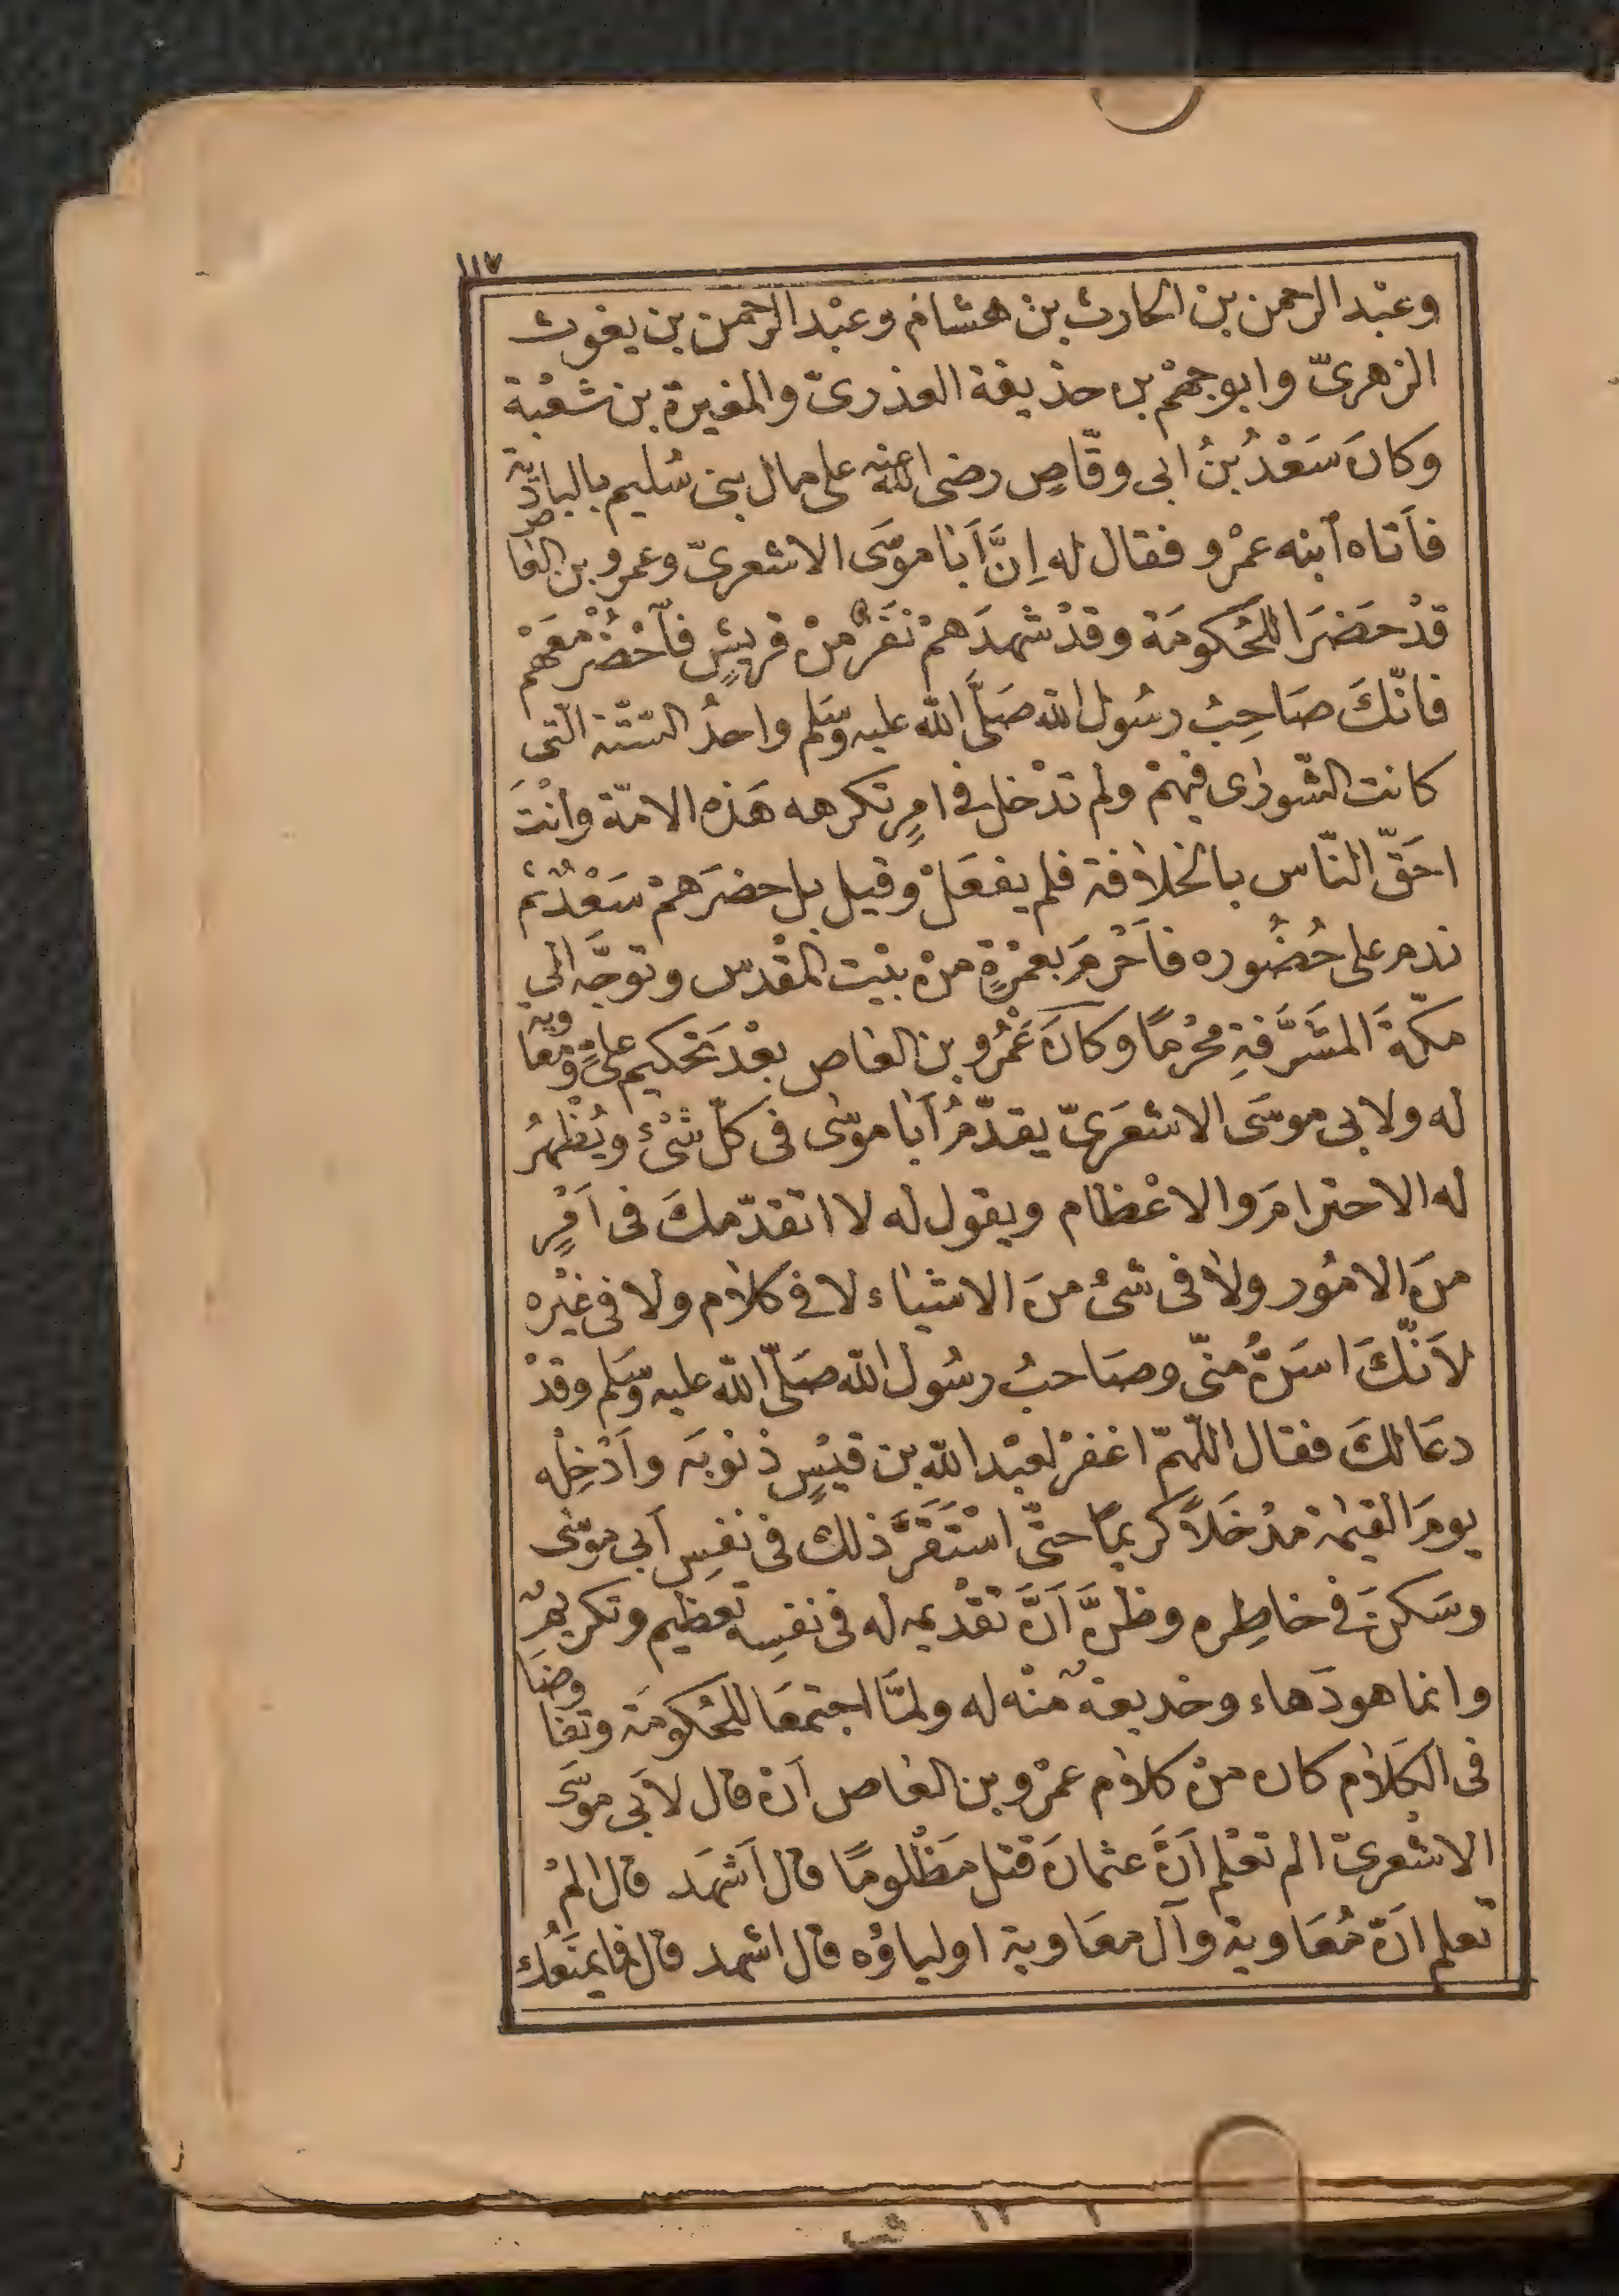 ١١٧
وعبْد الرحمن بن الحارث بن هشام وعبْد الرحمن بن يغوث
الزهرىّ وابوجهمْ بن حذيفة العذرىّ والمغيرة بن شعْبة
وكانَ سَعْدُ بنُ ابى وقّاصٍ رضى الله عنه على مال بنى سُليم بالبادية
فاَتاه اَبنه عمْرو فقال له اِنَّ اَبا موسَى الاشعرىّ وعمرو بن العاص
قدْ حَضَرَا للحُكومَة وقدْ شهدَهمْ نَفَرٌ منْ قريشٍ فاَحْضُرْ معَهم
فانّكَ صَاحِبُ رسُول الله صَلَّى الله عليه وسَلم واحدُ الستّة الّتى
كانت الشّورٰى فيهمْ ولم تدْخل فى امرٍ تكرهه هَذه الامّة واَنْتَ
احَقّ النّاس بالخلافة فلم يفعَلْ وقيل بل حضرَهمْ سَعْدٌ ثم
ندم على حُضُوره فاَحْرمَ بعمْرَةٍ منْ بيْت المقْدس وتوجّه الى
مكّةَ المشَرَّفةِ محْرمًا وكانَ عَمْرُو بن العاص بعْدَ تحْكيم علىّ ومعاوية
له ولابى موسَى الاشعَرىّ يقدّمُ اَبا موسٰى فى كلّ شىْءٍ ويُظْهرُ
له الاحترامَ والاعْظام ويقول له لا اتقدّمكَ فى اَمْرٍ
منَ الامُور ولا فى شىْءٍ منَ الاشياء لا فى كلام ولا فى غيْره
لاَنّكَ اسَنُّ منّى وصَاحبُ رسُول الله صَلّى الله عليه وسَلم وقدْ
دعَا لكَ فقال اللّهمّ اغفرْ لعبْد الله بن قيْسٍ ذنوبَه واَدْخِلْه
يومَ القيٰمة مدْخَلاً كريمًا حتّى اسْتَقَرَّ ذلك فى نفسِ اَبى موسٰى
وسَكنَ فى خاطِره وظنَّ اَنَّ تقْديمه له فى نفسِه تعظيم وتكريم
وانما هو دَهاء وخديعة منْه له ولمّا اجتمعَا للحُكومَة وتفاوضَا
فى الكَلام كان منْ كلام عمْرو بن العاص اَنْ قال لاَبى موسَى
الاشْعرىّ الم تعْلم اَنَّ عثمانَ قتل مَظْلومًا قال اَشهَد قال المْ
تعلم انَّ مُعَاوية وآل معَاوية اولياؤُه قال اشهد قال فما يمنَعُك